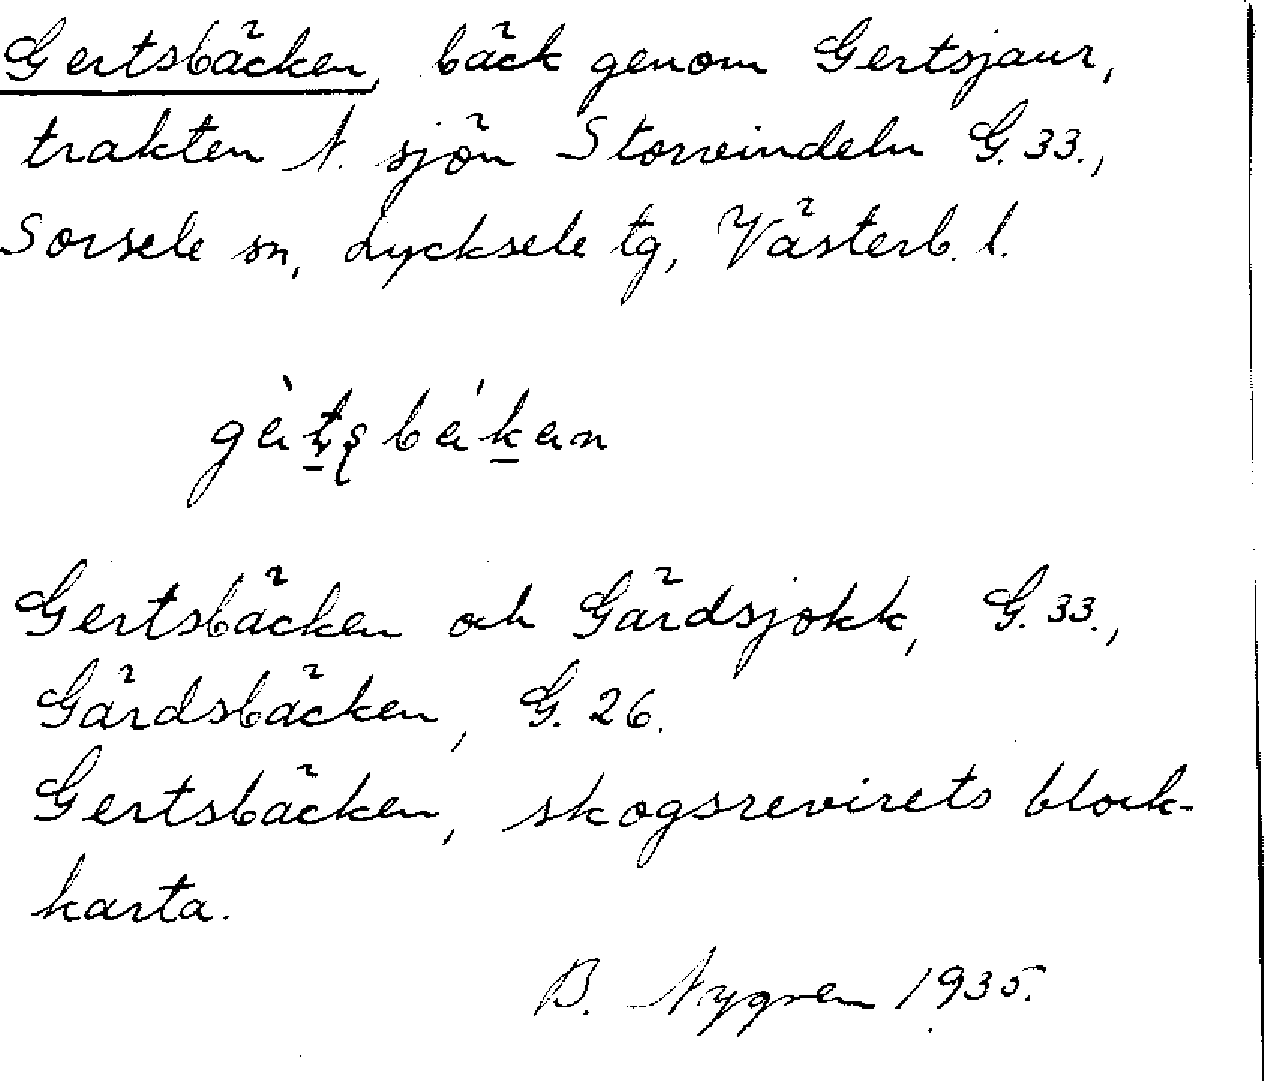 Gertsbäcken, bäck genom Gertsjaur,
trakten N. sjön Storvindeln G. 33.,
Sorsele sn, Lycksele tg, Västerb. l.
Gertsbäcken och Gärdsjokk, G. 33.,
Gärdsbäcken, G. 26.
Gertsbäcken, skogsrevirets block-
karta.
B. Nygren 1935.